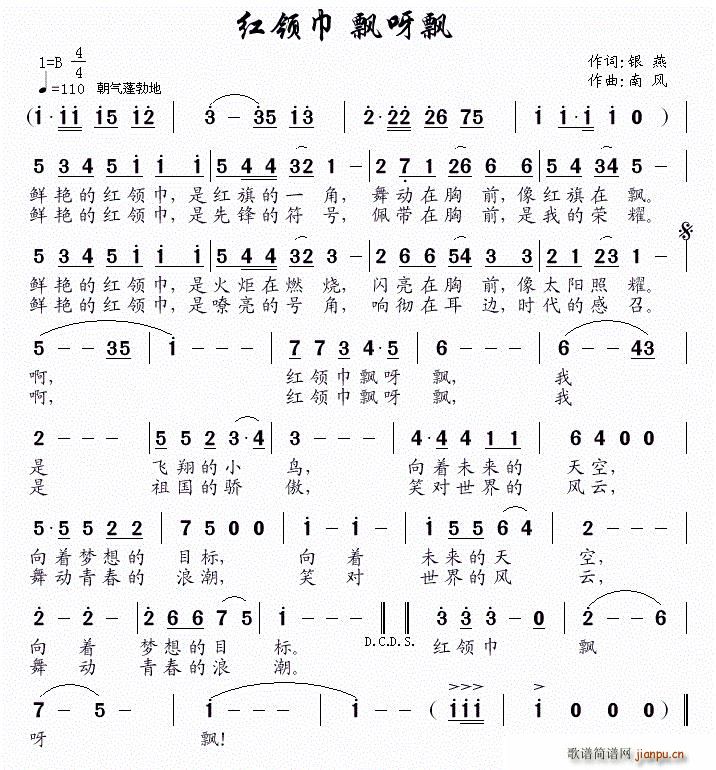 红领巾 飘呀飘
1=B 4/4
作词:银 燕
♩=110 朝气蓬勃地
作曲:南 风
(i·ii i5 i2 | 3-35 i3 | 2·22 26 75 | i i·i i 0)
5 34 5i i i | 54432 1 - | 27·126 6 6 | 5 2434 5 -
鲜艳的红领巾,是红旗的一 角, 舞动在胸 前,像红旗在 飘。
鲜艳的红领巾,是先锋的符 号, 佩带在胸 前,是我的荣 耀。
5 34 5i i i | 54432 3 - | 26 6 54 3 3 | 2 1 23 1 -
鲜艳的红领巾,是火炬在燃 烧, 闪亮在胸 前,像太阳照 耀。
鲜艳的红领巾,是嘹亮的号 角, 响彻在耳 边,时代的感 召。
5 - - 35 | i - - - | 7 7 3 4·5 | 6 - - - | 6 - - 43
啊, 红领巾飘呀 飘, 我
啊, 红领巾飘呀 飘, 我
2 - - - | 5 5 2 3·4 | 3 - - - | 4·4 4 4 1 1 | 6 4 0 0
是 飞翔的小 鸟, 向着未来的 天空,
是 祖国的骄 傲, 笑对世界的 风云,
5·5 5 5 2 2 | 7 5 0 0 | i - i - | i 5 5 6 4 | 2 - - -
向着梦想的 目标, 向 着 未来的天 空,
舞动青春的 浪潮, 笑 对 世界的风 云,
2 - 2 - | 2 6 6 7 5 | i - - - ‖ D.C.D.S. ‖ 3 3 3 - 0 | 2 - - 6
向 着 梦想的目 标。 红领巾 飘
舞 动 青春的浪 潮。
7 - 5 - | i - - - | i - - (iii | i 0 0 0)
呀 飘!
歌谱简谱网
jianpu.cn